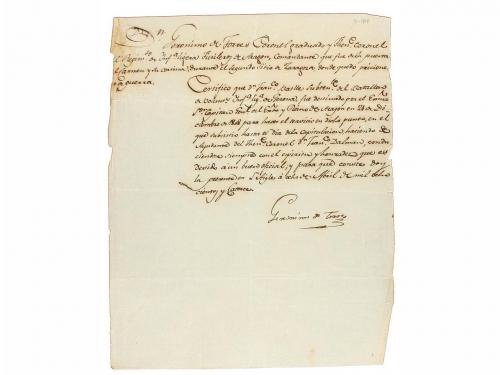 Dn. Geronimo de Torres Coronel graduado y Thente. Coronel
Regimto. de Infa. ligera Fusileros de Aragon, Comandante que fue de la puerta
Carmen y su cortina, durante el segundo Sitio de Zaragoza, donde quedó prisionero
guerra.
Certifico que Dn. Franco. Batlle Subtente. del Batallon
de Volunos. Infa. lig. de Gerona, fue destinado por el Exmo.
Sor. Capitan Genl. del Exto. y Reino de Aragon en 20 de Di-
ciembre de 1808 para hacer el servicio en dicho punto, en el
qual subsistio hasta el dia de la Capitulacion haciendo de
Ayudante del Thente. Coronel Dn. Juan Dalmau, condu-
ciendose siempre con el espiritu y honradez que es
devida à un buen oficial; y para que conste doy
la presente en de Abril de mil ocho
cientos y catorce.
Geronimo de Torres